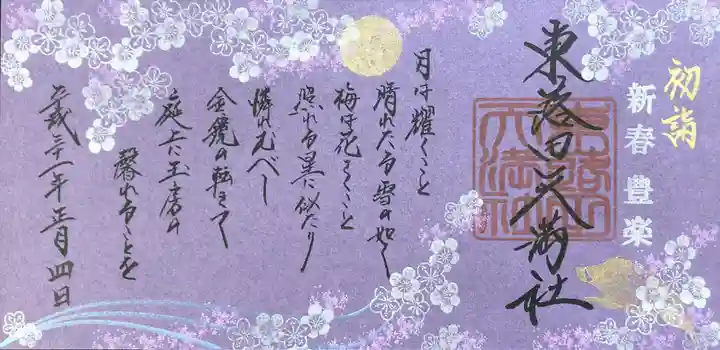 初詣
新春豊楽
東落合天満社
月は耀くこと
晴れたる雪の如く
梅は花さくこと
照れる星に似たり
憐れむべし
金鏡の転きて
庭上に玉房の
馨れることを
平成三十一年正月四日